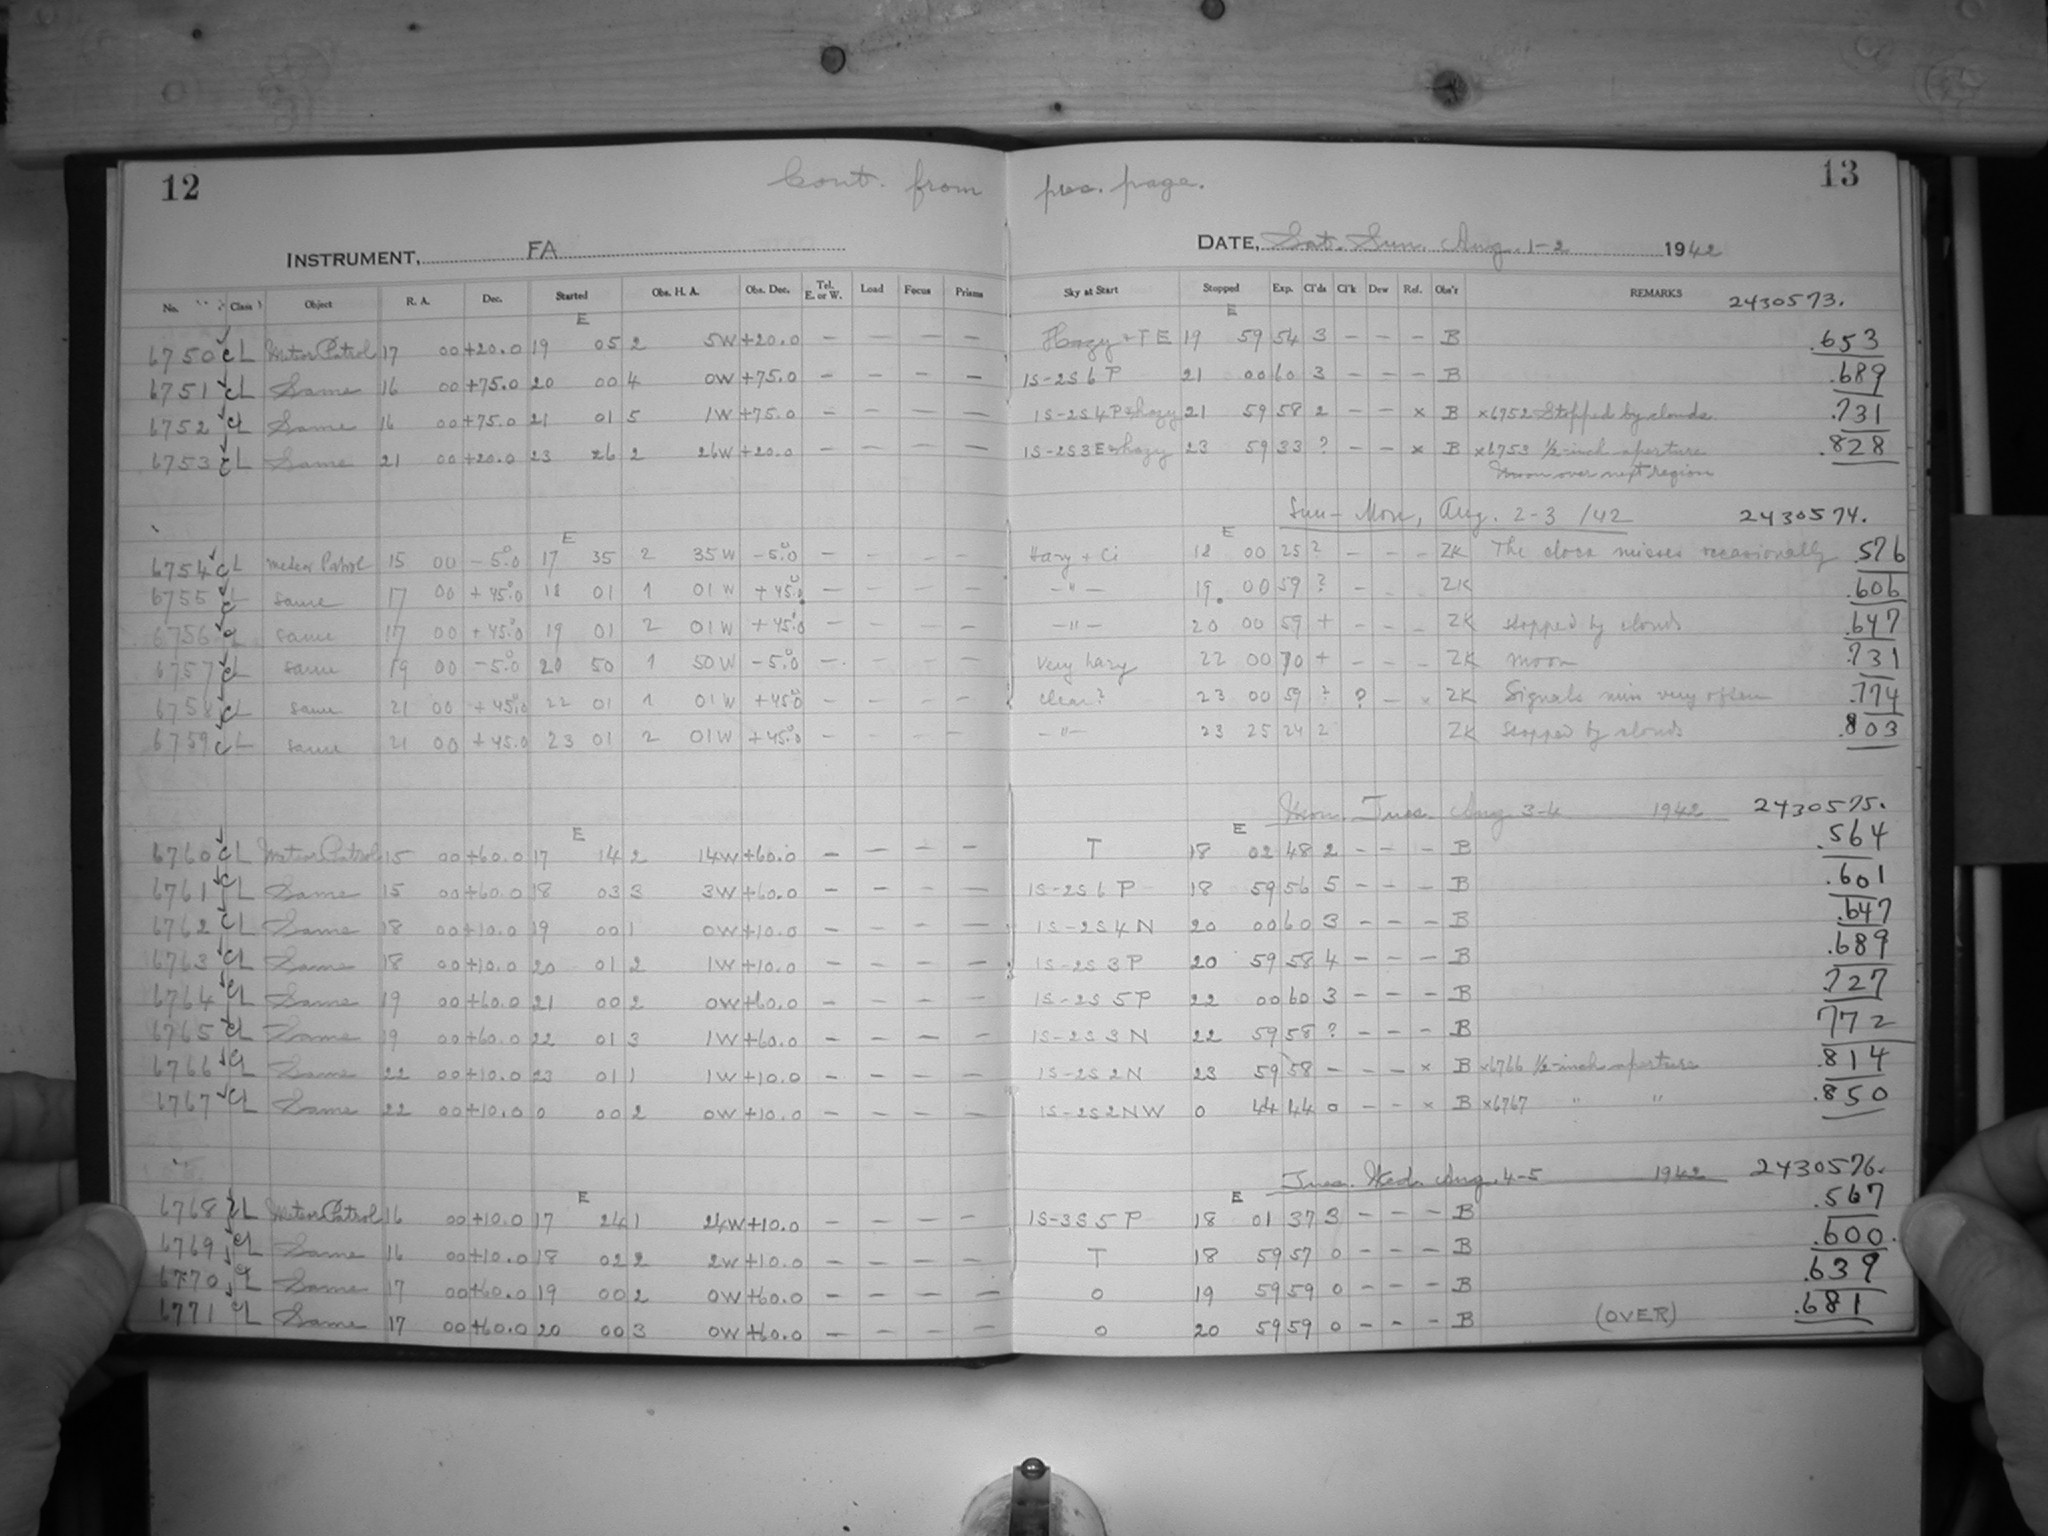 12 Cont. from prec. page. 13
INSTRUMENT, FA DATE, Sat. Sun. Aug. 1-2 1942
No. Class Object R. A. Dec. Started Obs. H. A. Obs. Dec. Tel. E. or W. Load Focus Prisms Sky at Start Stopped Exp. Cl'ds Cl'k Dew Ref. Obs'r REMARKS 2430573.
E E
6750 CL Meteor Patrol 17 00 +20.0 19 05 2 5W +20.0 — — — — Hazy + T E 19 59 54 3 — — — B .653
6751 CL Same 16 00 +75.0 20 00 4 0W +75.0 — — — — 1S-2S 6 P 21 00 60 3 — — — B .689
6752 CL Same 16 00 +75.0 21 01 5 1W +75.0 — — — — 1S-2S 4 P + hazy 21 59 58 2 — — x B x6752 Stopped by clouds. .731
6753 CL Same 21 00 +20.0 23 26 2 26W +20.0 — — — — 1S-2S 3 E + hazy 23 59 33 ? — — x B x6753 1/2-inch aperture .828
Moon over next region
Sun - Mon, Aug. 2-3 /42 2430574.
E E
6754 CL meteor Patrol 15 00 -5.0 17 35 2 35W -5.0 — — — — Hazy + Ci 18 00 25 ? — — — ZK The clock misses occasionally .576
6755 CL same 17 00 +45.0 18 01 1 01W +45.0 — — — — -"- 19 00 59 ? — — — ZK .606
6756 CL same 17 00 +45.0 19 01 2 01W +45.0 — — — — -"- 20 00 59 + — — — ZK stopped by clouds .647
6757 CL same 19 00 -5.0 20 50 1 50W -5.0 — — — — Very hazy 22 00 70 + — — — ZK moon .731
6758 CL same 21 00 +45.0 22 01 1 01W +45.0 — — — — Clear? 23 00 59 ? ? — x ZK Signals miss very often .774
6759 CL same 21 00 +45.0 23 01 2 01W +45.0 — — — — -"- 23 25 24 2 ZK Stopped by clouds .803
Mon. Tues. Aug. 3-4 1942 2430575.
E E
6760 CL Meteor Patrol 15 00 +60.0 17 14 2 14W +60.0 — — — — T 18 02 48 2 — — — B .564
6761 CL Same 15 00 +60.0 18 03 3 3W +60.0 — — — — 1S-2S 6 P 18 59 56 5 — — — B .601
6762 CL Same 18 00 +10.0 19 00 1 0W +10.0 — — — — 1S-2S 4 N 20 00 60 3 — — — B .647
6763 CL Same 18 00 +10.0 20 01 2 1W +10.0 — — — — 1S-2S 3 P 20 59 58 4 — — — B .689
6764 CL Same 19 00 +60.0 21 00 2 0W +60.0 — — — — 1S-2S 5 P 22 00 60 3 — — — B .727
6765 CL Same 19 00 +60.0 22 01 3 1W +60.0 — — — — 1S-2S 3 N 22 59 58 ? — — — B 772
6766 CL Same 22 00 +10.0 23 01 1 1W +10.0 — — — — 1S-2S 2 N 23 59 58 — — — x B x6766 1/2-inch aperture .814
6767 CL Same 22 00 +10.0 0 00 2 0W +10.0 — — — — 1S-2S 2 NW 0 44 44 0 — — x B x6767 " " .850
Tues. Wed. Aug. 4-5 1942 2430576.
E E
6768 CL Meteor Patrol 16 00 +10.0 17 24 1 24W +10.0 — — — — 1S-3S 5 P 18 01 37 3 — — — B .567
6769 CL Same 16 00 +10.0 18 02 2 2W +10.0 — — — — T 18 59 57 0 — — — B .600.
6770 CL Same 17 00 +60.0 19 00 2 0W +60.0 — — — — 0 19 59 59 0 — — — B .639
6771 CL Same 17 00 +60.0 20 00 3 0W +60.0 — — — — 0 20 59 59 0 — — — B (OVER) .681